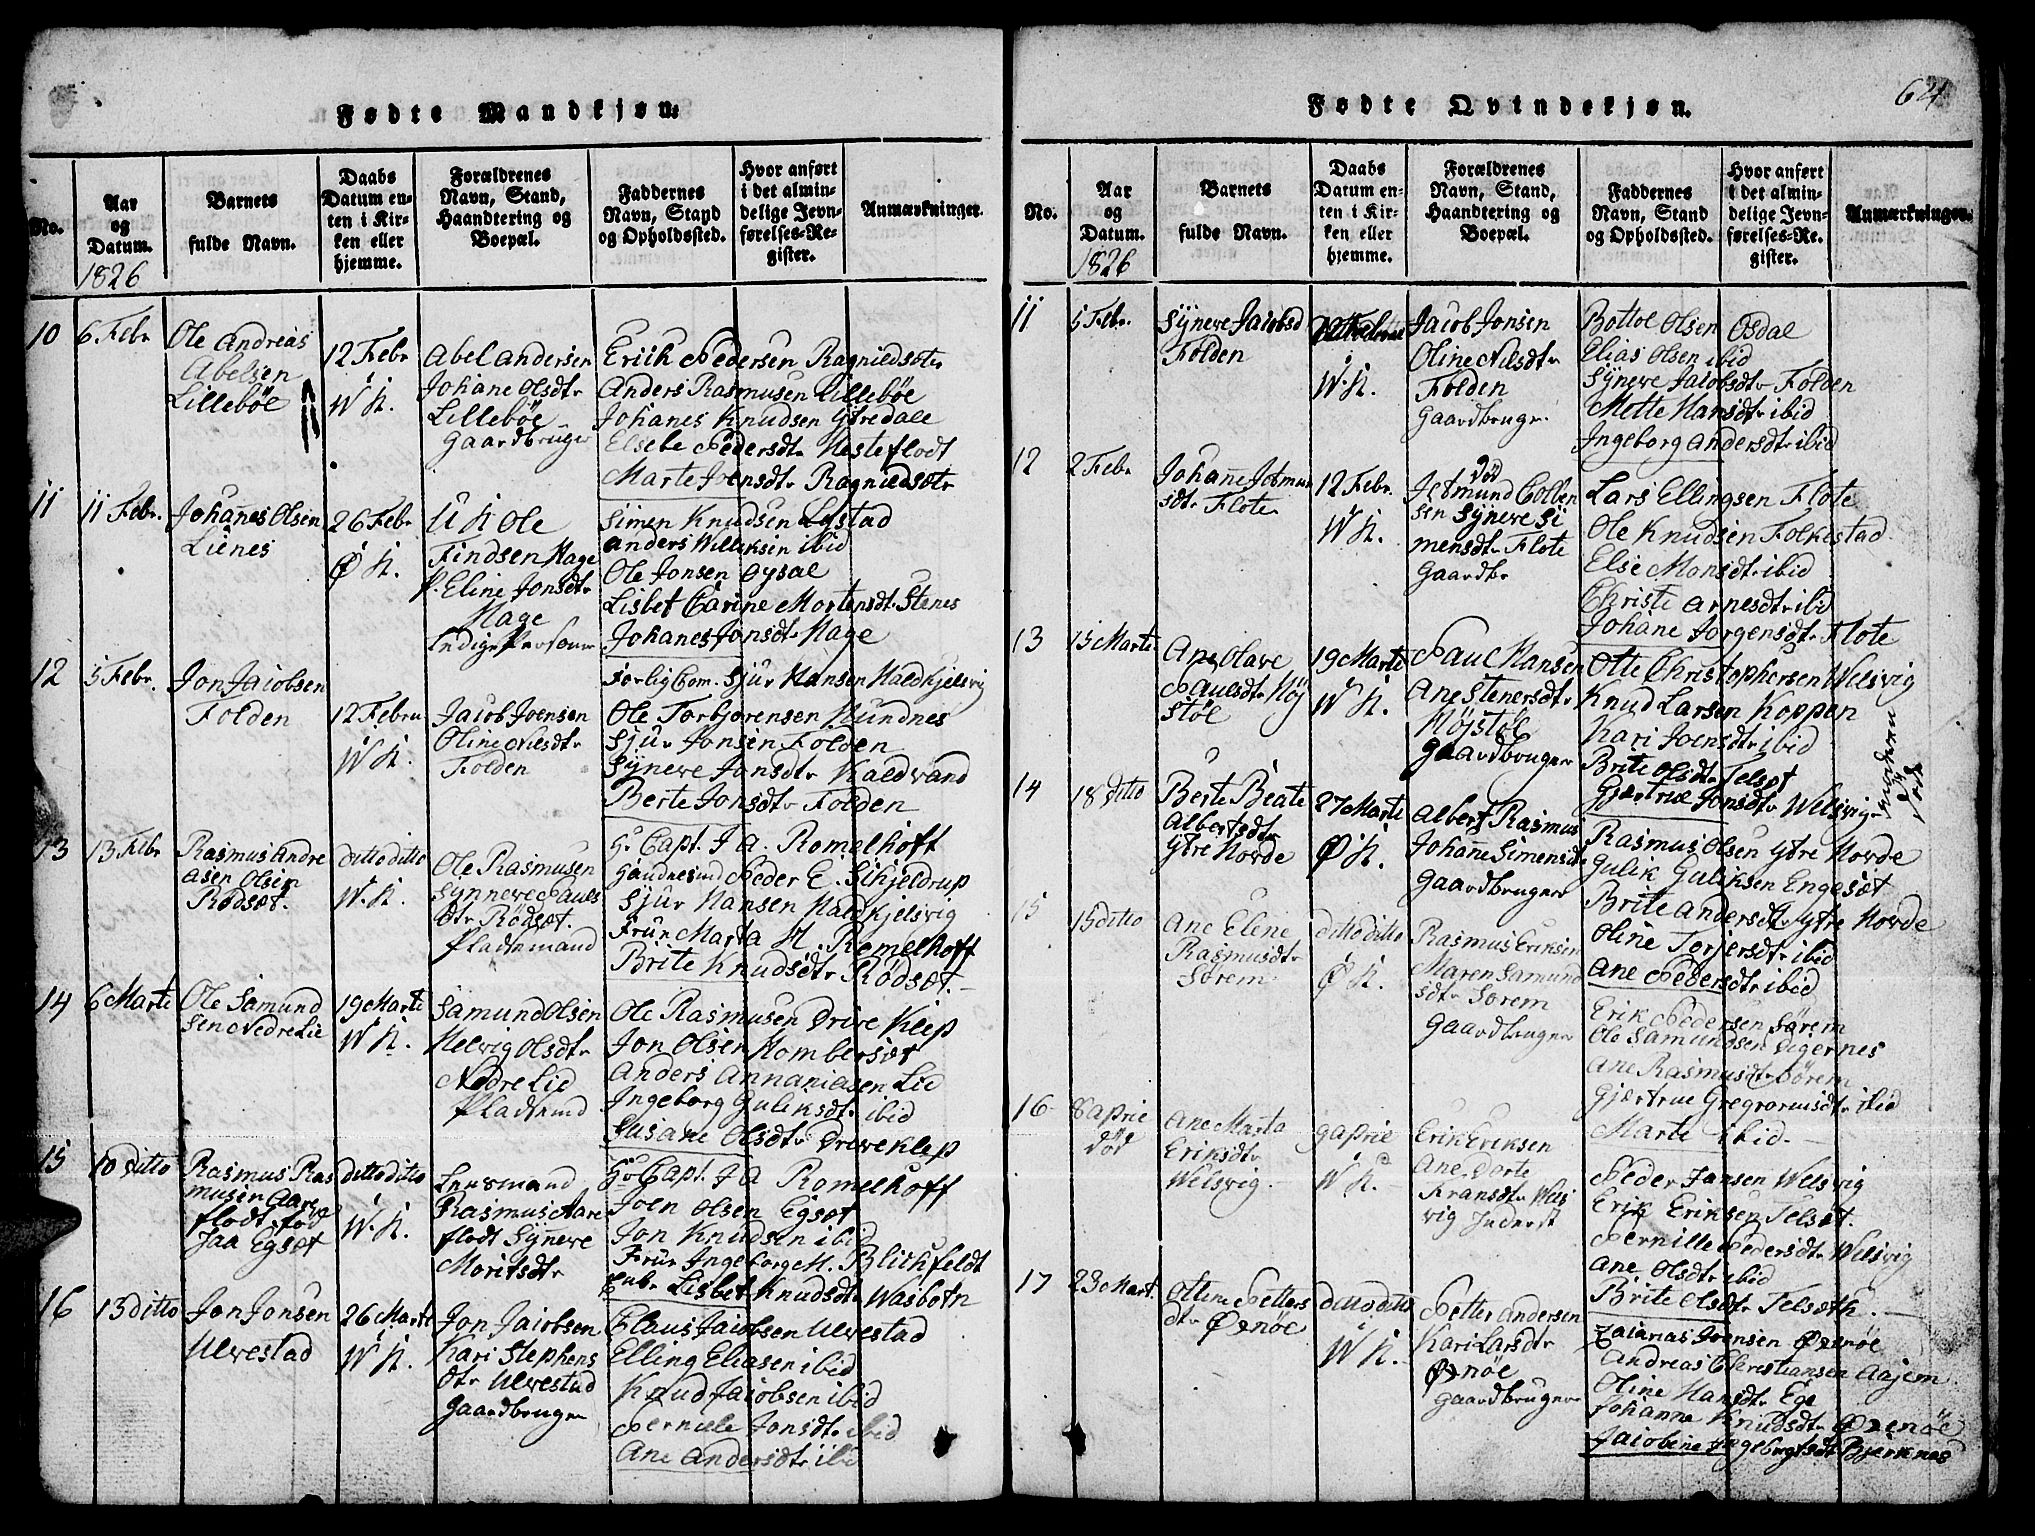 Fødte Mandkjøn.
No.
Aar
og
Datum.
1826
Barnets
fulde Navn.
Daabs
Datum en-
ten i Kir-
ken eller
hjemme.
Forældrenes
Navn, Stand,
Haandtering og
Boepæl.
Faddernes
Navn, Stand
og Opholdssted.
Hvor anført
i det almin-
delige Jevn-
førelses-Re-
gister.
Anmærkninger.
10
6 Febr
Ole Andreas
Abelsen
Lillebøe
12 Febr
W K.
Abel Andersen
Johane Olsdtr
Lillebøe
Gaardbruger
Erich Pedersen Ragnildsøtr
Anders Rasmusen Lillebøe
Johanes Knudsen Ytredale
Elsebe Pedersdtr Hesteflodt
Marte Joensdtr Ragnildsøtr
11
11 Febr.
Johanes Olsen
Lienes
26 Febr
Ø K.
U K Ole
Findsen Hage
P. Eline Jonsdtr
Hage
Ledige Personer
Simen Knudsen Lystad
Anders Willeksen ibid
Ole Jonsen Øysal
Lisbet Carine Mortensdtr Stenes
Johanes Jonsdtr Hage
12
5 Febr.
Jon Jacobsen
Folden
12 Febru
W K.
Jacob Joensen
Oline Nilsdtr
Folden
Forlig Com. Sjur Hansen Haldkjelsvig
Ole Torbjørensen Hundnes
Sjur Jonsen Folden
Syneve Jonsdtr Kaldvand
Berte Jonsdtr Folden
13
13 Febr
Rasmus Andre
asen Olsen
Rødsæt.
ditto ditto
W. K.
Ole Rasmusen
Synneve Pauls
dtr Rødsæt.
Pladsemand
Hr Capt. J A. Romelhoft
Peder E. Sikjeldrup
Sjur Hansen Haldkjelsvig
Frue Marta H. Romelhoff
Brite Knudsdtr Rødsæt.
14
6 Marti
Ole Samund
sen Nedre Lie
19 Marti
W K.
Samund Olsen
Helvig Olsdtr
Nedre Lid
Pladsemd
Ole Rasmusen Dreve Klep
Jon Olsen Hombersæt
Anders Annaniasen Lid
Ingeborg Guliksdtr ibid
Susane Olsdtr Dreveklep
15
10 Ditto
Rasmus Ras
musen Aare
flodt fød
paa Egsæt
ditto ditto
W. K.
Lensmand
Rasmus Aare
flodt Synneve
Moritsdtr
Hr Capt. J A Romelhoff
Joen Olsen Egsæt
Jon Knudsen ibid
Frue Ingeborg M. Blichfeldt
Lisbet Knudsdtr Wasbotn
16
13 Ditto
Jon Jonsen
Ulvestad
26 Marti
W K.
Jon Jacobsen
Kari Stephens
dtr Ulvestad
Gaardbruger
Claus Jacobsen Ulvestad
Elling Eliasen ibid
Knud Jacobsen ibid
Pernille Jonsdtr ibid
Ane Andersdtr ibid
64
Fødte Qvindekjøn.
No.
Aar
og
Datum.
1826
Barnets
fulde Navn.
Daabs
Datum en-
ten i Kir-
ken eller
hjemme.
Forældrenes
Navn, Stand,
Haandtering og
Boepæl.
Faddernes
Navn, Stand
og Opholdssted.
Hvor anført
i det almin-
delige Jevn-
førelses-Re-
gister.
Anmærkninger.
11
5 Febr.
Syneve Jacobsd
Folden
W. K.
Jacob Jonsen
Oline Nilsdtr
Folden
Gaardbruger
Bottol Olsen Osdal
Elias Olsen ibid
Syneve Jacobsdtr Folden
Mette Hansdtr ibid
Ingeborg Andersdtr ibid
12
2 Febr
Johane Jetmun
sdtr Flote
12 Febr.
W K.
død
Jetmund Colben
sen Synneve Si
mensdtr Flote
Gaardbr
Lars Ellingsen Flote
Ole Knudsen Folkestad
Else Monsdtr ibid
Christi Arnesdtr ibid
Johane Jorgensdtr Flote
13
15 Marti
Ane Olave
Paulsdtr Høj
støl
19 Marti
W K.
Paul Hansen
Ane Stenersdtr
Højstøl
Gaardbruger
Otte Christophersen Welsvig
Knud Larsen Koppen
Kari Joensdtr ibid
Brite Olsdtr Telsæt
Gjærtrue Jonsdtr Welsvig
Moderen
død
14
18 ditto
Berte Beate
Albertsdtr
Ytre Hovde
27 Marti
Ø K.
Albert Rasmus
Johanne Simensdtr
Gaardbruger
Rasmus Olsen Ytre Hovde
Gulik Guliksen Engesæt
Brite Andersdtr Ytre Hovde
Oline Torjersdtr ibid
Ane Pedersdtr ibid
15
15 ditto
Ane Eline
Rasmusdtr
Sørem
ditto ditto
Ø K.
Rasmus Eriksen
Maren Samund
sdtr Sorem
Gaardbruger
Erik Pedersen Sørem
Ole Samundsen Digernes
Ane Rasmusdtr Sørem
Gjærtrue Gregroriusdtr ibid
Marte ibid
16
8 Aprie
død
Ane Marta
Eriksdtr
Welsvig
9 Aprie
W K.
Erik Eriksen
Ane Dorte
Fransdtr Wels
vig Inderst
Peder Jansen Welsvig
Erik Eriksen Telsæt.
Pernille Pedersdtr Welsvig
Ane Olsdtr ibid
Brite Olsdtr Telsæth.
17
23 Mart.
Oline Petters
dtr Ørnøe
ditto ditto
W K.
Petter Andersen
Kari Larsdtr
Ørnøe
Gaardbruger
Zaiarias Joensen Ørnøe
Andreas Christiansen Aajem
Oline Hansdtr Ege
Johanne Knudsdtr Ørnøe
Jaiobine Ingebrgtsdtr Bjerknes